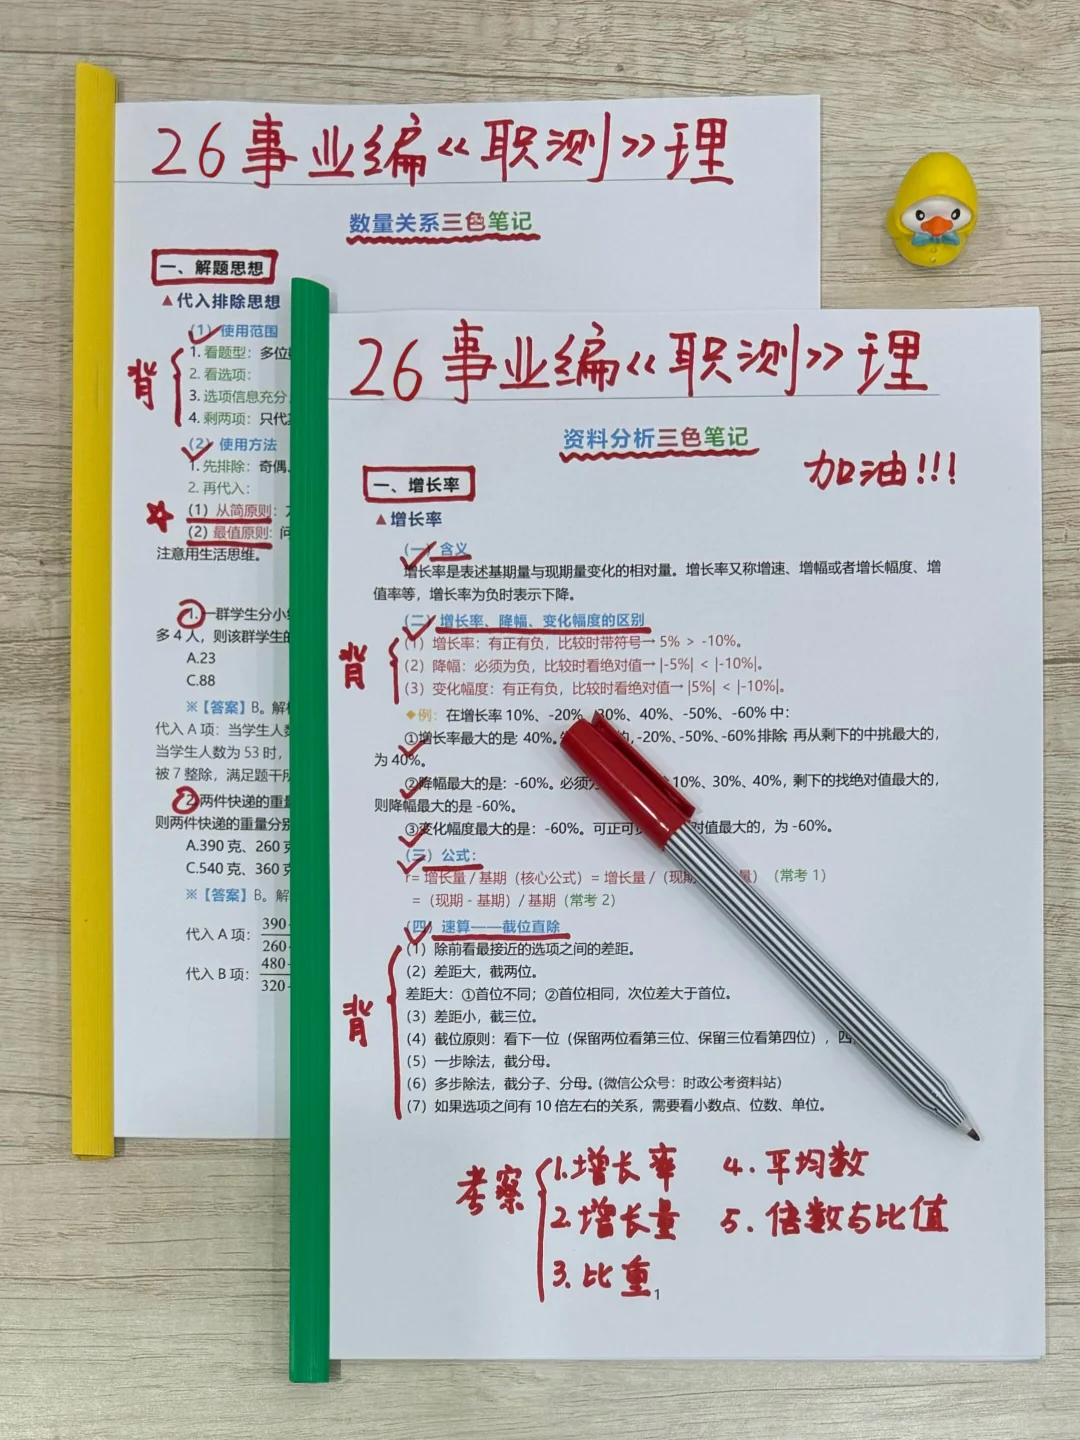 26事业编《职测》理
数量关系三色笔记
一、解题思想
▲代入排除思想
(1)使用范围
背
1.看题型：多位
2.看选项：
3.选项信息充分
4.剩两项：只代
(2)使用方法
1.先排除：奇偶、
2.再代入：
(1)从简原则：
(2)最值原则：问
注意用生活思维。
1.一群学生分小
多4人，则该群学生的
A.23
C.88
※【答案】B。解
代入A项：当学生人数
当学生人数为53时，
被7整除，满足题干所
2.两件快递的重量
则两件快递的重量分别
A.390克、260克
C.540克、360克
※【答案】B。解
代入A项：390
260
代入B项：480
320
26事业编《职测》理
资料分析三色笔记
加油!!!
一、增长率
▲增长率
(一)含义
增长率是表述基期量与现期量变化的相对量。增长率又称增速、增幅或者增长幅度、增
值率等，增长率为负时表示下降。
(二)增长率、降幅、变化幅度的区别
背
(1)增长率：有正有负，比较时带符号→5% > -10%。
(2)降幅：必须为负，比较时看绝对值→|-5%| < |-10%|。
(3)变化幅度：有正有负，比较时看绝对值→|5%| < |-10%|。
◆例：在增长率10%、-20%、30%、40%、-50%、-60%中：
①增长率最大的是：40%。的，-20%、-50%、-60%排除，再从剩下的中挑最大的，
为40%。
②降幅最大的是：-60%。必须为10%、30%、40%，剩下的找绝对值最大的，
则降幅最大的是-60%。
③变化幅度最大的是：-60%。可正可对值最大的，为-60%。
(三)公式：
r=增长量/基期（核心公式）=增长量/（现期量）（常考1）
=（现期-基期）/基期（常考2）
(四)速算——截位直除
背
(1)除前看最接近的选项之间的差距。
(2)差距大，截两位。
差距大：①首位不同；②首位相同，次位差大于首位。
(3)差距小，截三位。
(4)截位原则：看下一位（保留两位看第三位、保留三位看第四位），四
(5)一步除法，截分母。
(6)多步除法，截分子、分母。（微信公众号：时政公考资料站）
(7)如果选项之间有10倍左右的关系，需要看小数点、位数、单位。
考察
1.增长率
2.增长量
3.比重
4.平均数
5.倍数与比值
1